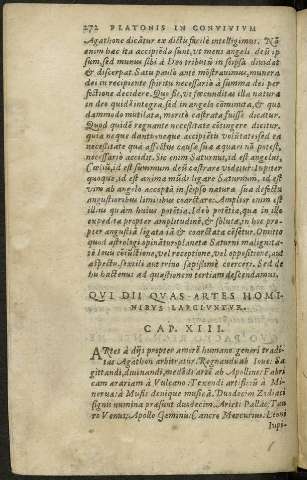 272 PLATONIS IN CONVIVIVM
Agathone dicūtur ex dictis facile intelligimus. Nō
enim hæc ita accipiēda sunt, vt mens angeli deū ip
sum, sed munus sibi à Deo tributū in seipsa diuidat
& discerpat. Satu paulò antè mōstrauimus, munera
dei in recipiente spiritu necessariò à summa dei per
fectione decidere. Quo fit, vt fœcunditas illa naturæ
in deo quidē integra, sed in angelo diminuta, & quo
dammodo mutilata, meritò castrata fuisse dicatur.
Quod quidē regnante necessitate cōtigere dicitur,
quia neque dantis neque accipiētis volūtate, sed ea
necessitate qua effectus causæ suæ æquari nō potest,
necessariò accidit. Sic enim Saturnus, id est angelus,
Cœliū, id est summum deū castrare videtur. Iupiter
quoque, id est anima mūdi ligare Saturnum, id est
vim ab angelo acceptā in seipso natura suæ defectu
angustioribus limitibus coarctare. Amplior enim est
illius quàm huius potētia. Ideo potētia, quæ in illo
expedita propter amplitudinē, & soluta, in hoc pro-
pter angustiā ligata iā & coarctata cōsetur. Omitto
quod astrologi opinātur, planetæ Saturni malignitа-
tē Iouis cōiūctione, vel receptione, vel oppositione, aut
aspectu, sextili aut trino sæpissimè coerceri. Sed de
his hactenus ad quæstionem tertiam descendamus.
QVI DII QVAS ARTES HOMI-
NIBVS LARGIVNTVR.
CAP. XIII.
ARtes à dijs propter amorē humano generi tradi-
tas Agathon arbitratur. Regnandi ab Ioue. Sa-
gittandi, diuinandi, medēdi artē ab Apolline: Fabri
cam ærariam à Vulcano. Texendi artificiū à Mi-
nerua: à Musis denique musicā. Duodecim Zodiaci
signis numina præsunt duodecim. Arieti Pallas, Tau
ro Venus, Apollo Geminis: Cancro Mercurius. Leoni
Iupi-